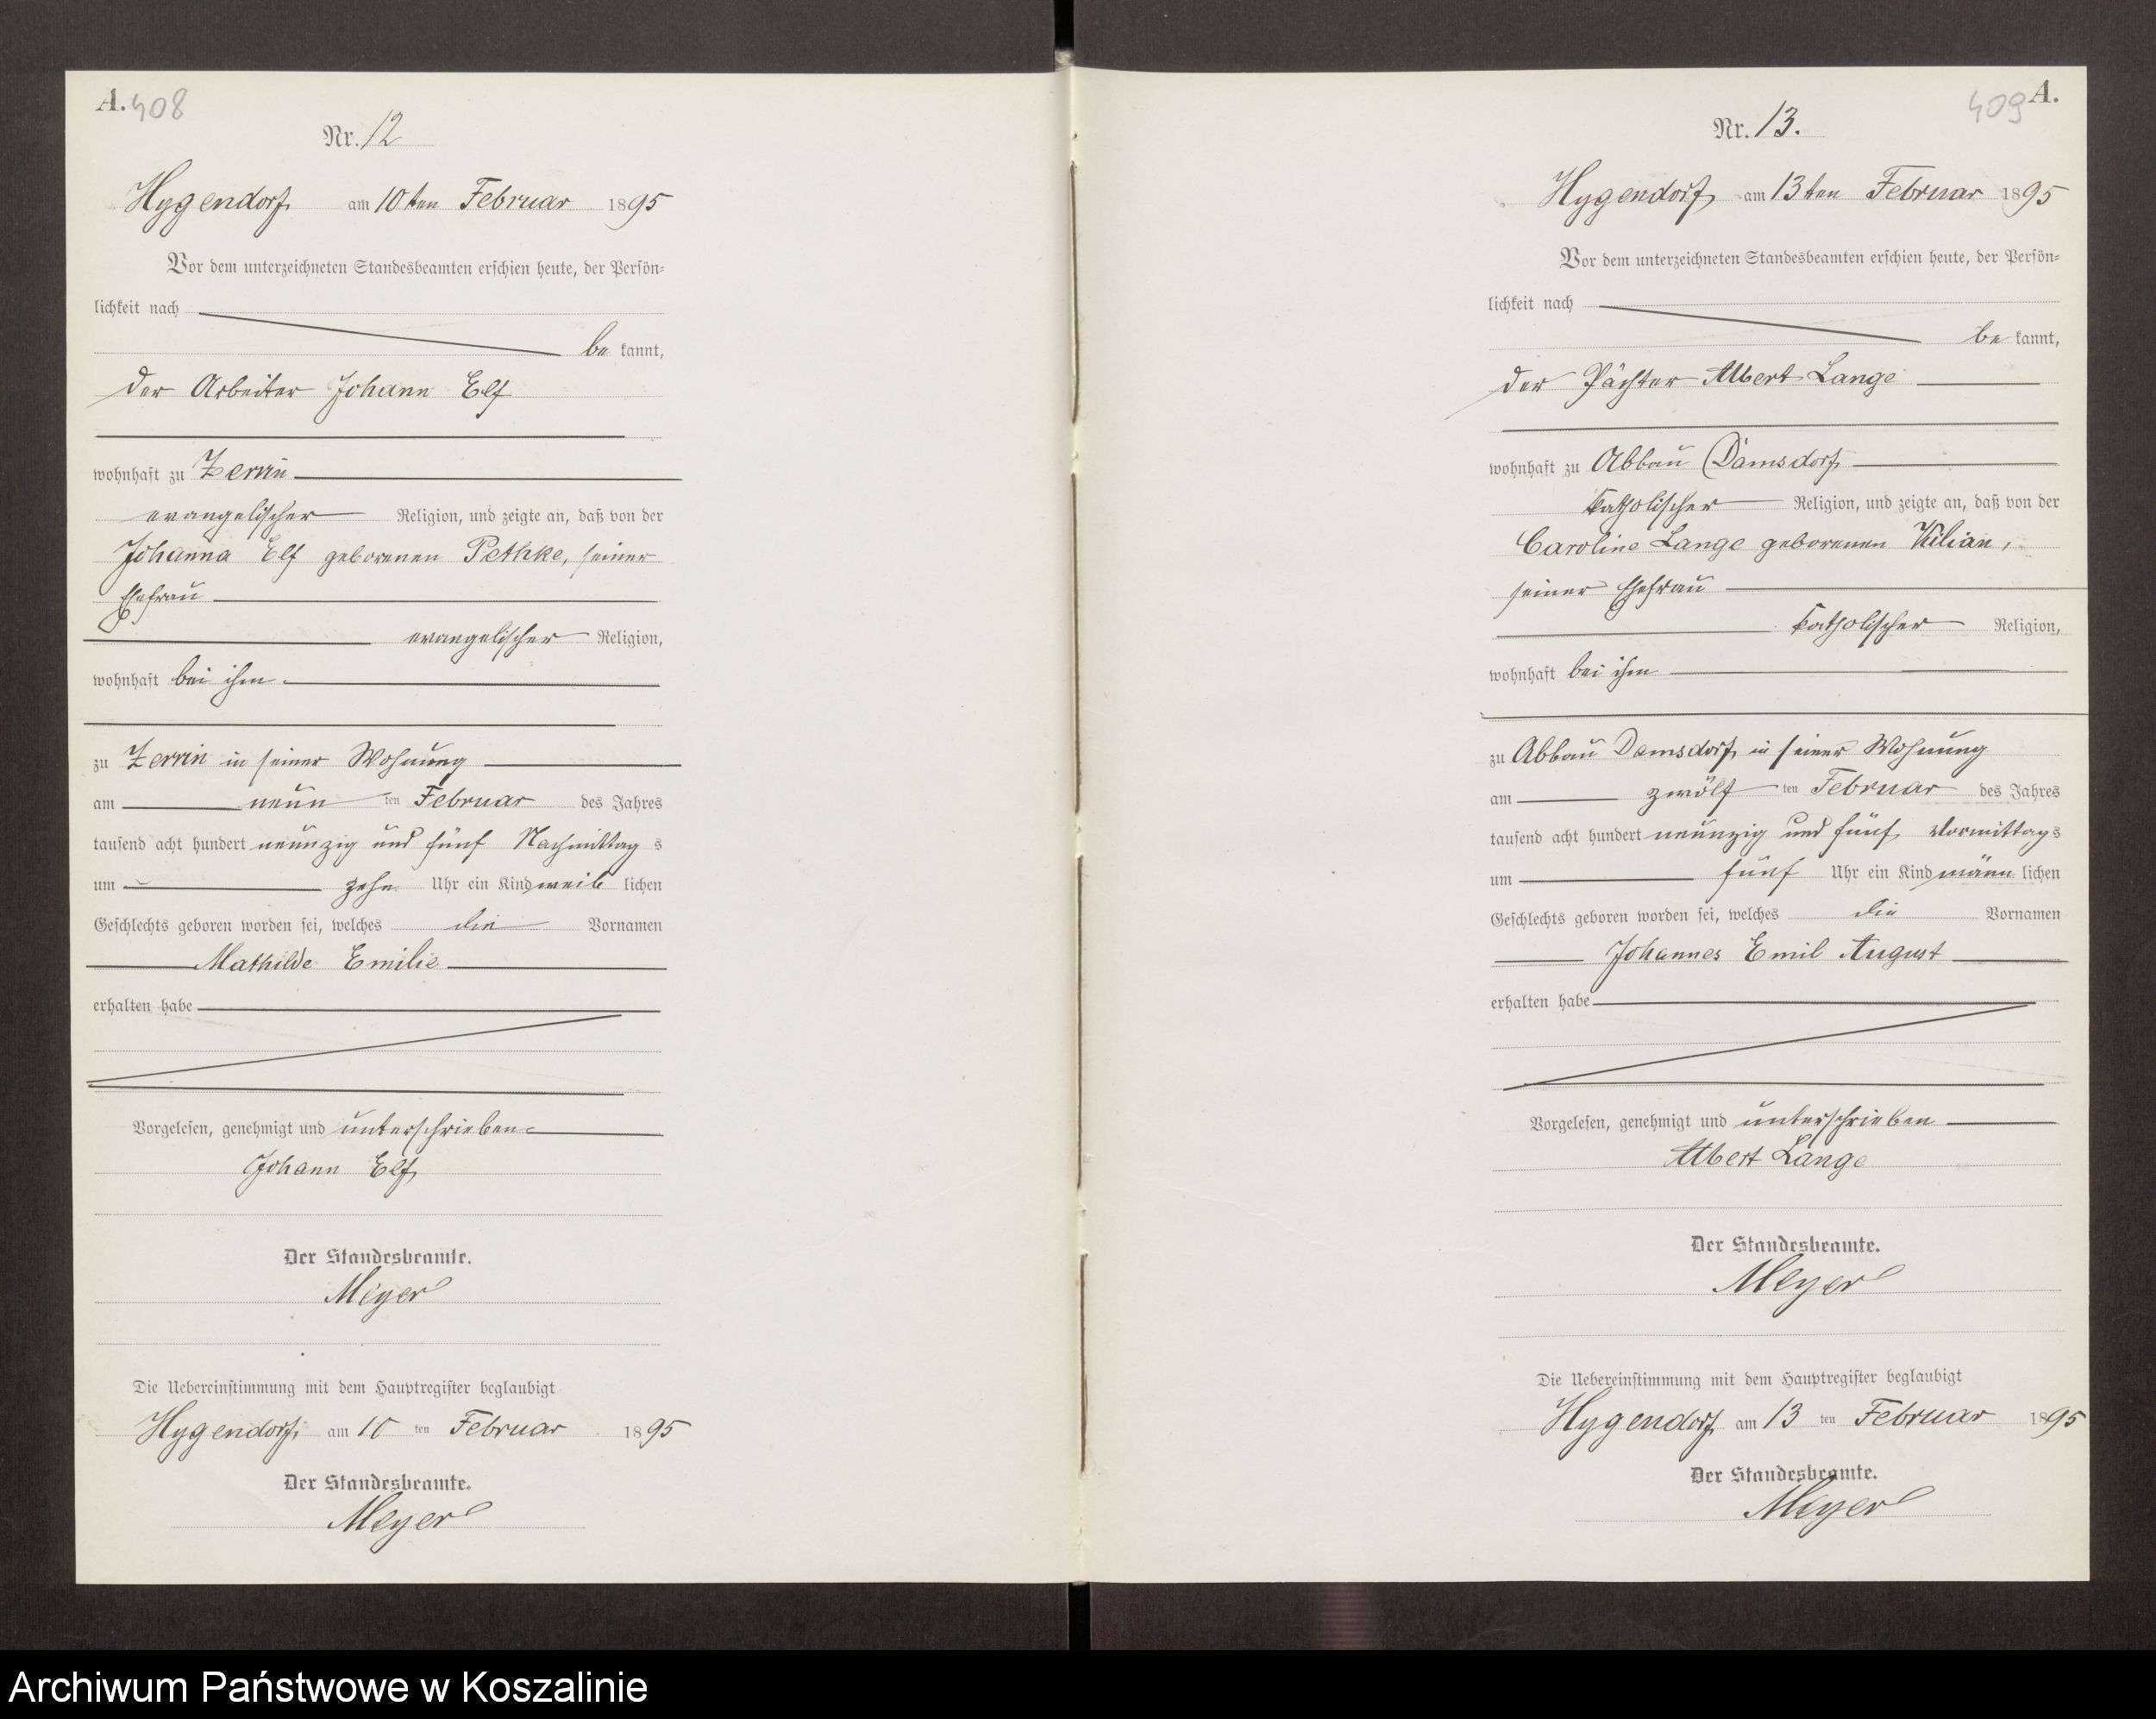 A. 408
Nr. 12
Hygendorf am 10ten Februar 1895
Vor dem unterzeichneten Standesbeamten erschien heute, der Persön-
lichkeit nach
be kannt,
der Arbeiter Johann Elf
wohnhaft zu Zerrin
evangelischer Religion, und zeigte an, daß von der
Johanna Elf geborenen Pethke, seiner
Ehefrau
evangelischer Religion,
wohnhaft bei ihm
zu Zerrin in seiner Wohnung
am neun ten Februar des Jahres
tausend acht hundert neunzig und fünf Nachmittag s
um zehn Uhr ein Kind weib lichen
Geschlechts geboren worden sei, welches die Vornamen
Mathilde Emilie
erhalten habe
Vorgelesen, genehmigt und unterschrieben
Johann Elf
Der Standesbeamte.
Meyer
Die Uebereinstimmung mit dem Hauptregister beglaubigt
Hygendorf am 10 ten Februar 1895
Der Standesbeamte.
Meyer
409 A.
Nr. 13.
Hygendorf am 13ten Februar 1895
Vor dem unterzeichneten Standesbeamten erschien heute, der Persön-
lichkeit nach
be kannt,
der Pächter Albert Lange
wohnhaft zu Abbau Damsdorf
katholischer Religion, und zeigte an, daß von der
Caroline Lange geborenen Kilian,
seiner Ehefrau
katholischer Religion,
wohnhaft bei ihm
zu Abbau Damsdorf in seiner Wohnung
am zwölf ten Februar des Jahres
tausend acht hundert neunzig und fünf Vormittag s
um fünf Uhr ein Kind männ lichen
Geschlechts geboren worden sei, welches die Vornamen
Johannes Emil August
erhalten habe
Vorgelesen, genehmigt und unterschrieben
Albert Lange
Der Standesbeamte.
Meyer
Die Uebereinstimmung mit dem Hauptregister beglaubigt
Hygendorf am 13 ten Februar 1895
Der Standesbeamte.
Meyer
Archiwum Państwowe w Koszalinie